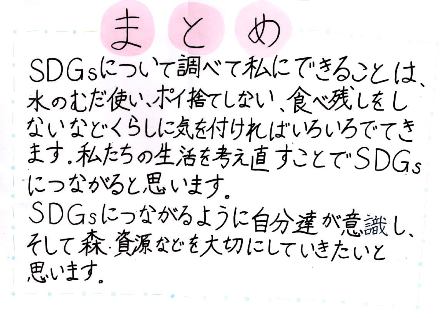 まとめ
SDGsについて調べて私にできることは、
水のむだ使い、ポイ捨てしない、食べ残しをし
ないなどくらしに気を付ければいろいろでてき
ます。私たちの生活を考え直すことでSDGs
につながると思います。
SDGsにつながるように自分達が意識し、
そして森・資源などを大切にしていきたいと
思います。